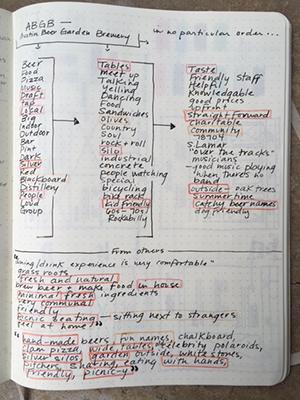 ABGB —
Austin Beer Garden Brewery
in no particular order...
Beer
Food
Pizza
Music
Draft
Tap
Local
Big
Indoor
Outdoor
Bar
Pint
Dark
Silver
Red
Blackboard
Distillery
People
Loud
Group
Tables
meet up
Talking
yelling
Dancing
Food
Sandwiches
Olives
Country
Soul
rock + roll
silo
industrial
Concrete
people watching
special
bicycling
bike rack
kid friendly
60s - 70s
Rockabilly
Taste
friendly Staff
Helpful
Knowledgable
good prices
upfront
Straight forward
charitable
Community
78704
S. Lamar
"over the tracks"
musicians —
good music playing
when there's no
band
outside - oak trees
Summertime
Catchy beer names
dog friendly
From others
drink experience is very comfortable"
grass roots
fresh and natural
brew beer + make food in house
minimal fresh ingredients
very communal
friendly
picnic seating — sitting next to strangers
feel at home"
"hand-made beers, fun names, chalkboard,
clam pizza, wide tables, celebrity polaroids,
silver silos, garden outside, white stones,
pitchers, sharing, eating with hands,
friendly, picnicy"